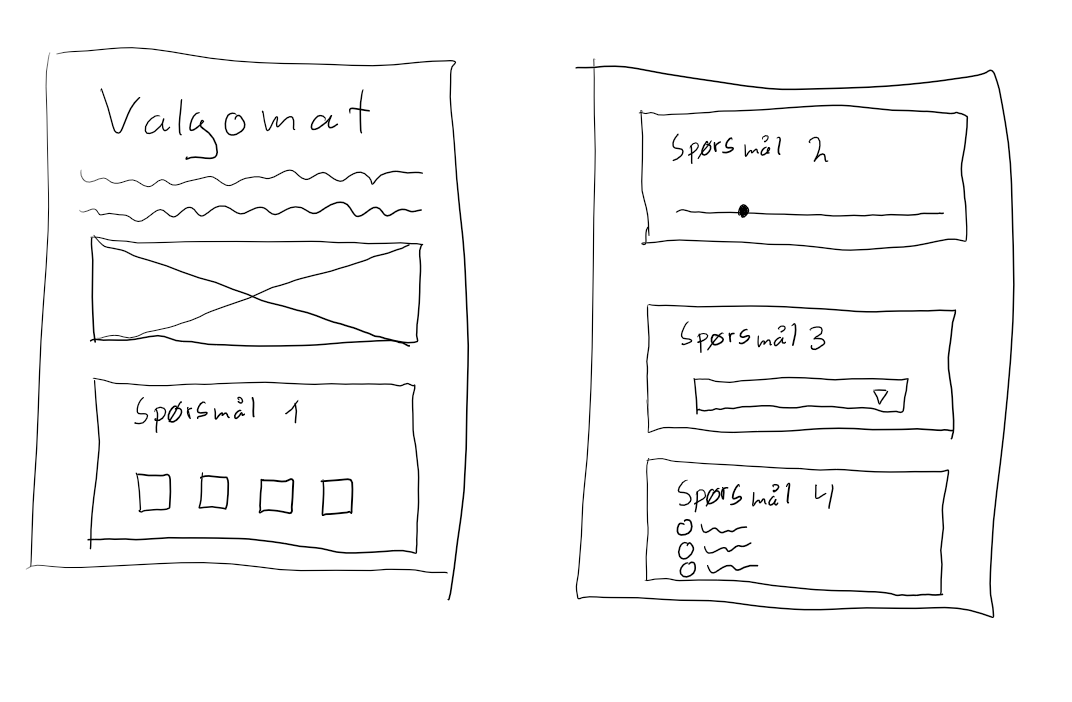 Valgomat
Spørsmål 1
Spørsmål 2
Spørsmål 3
Spørsmål 4